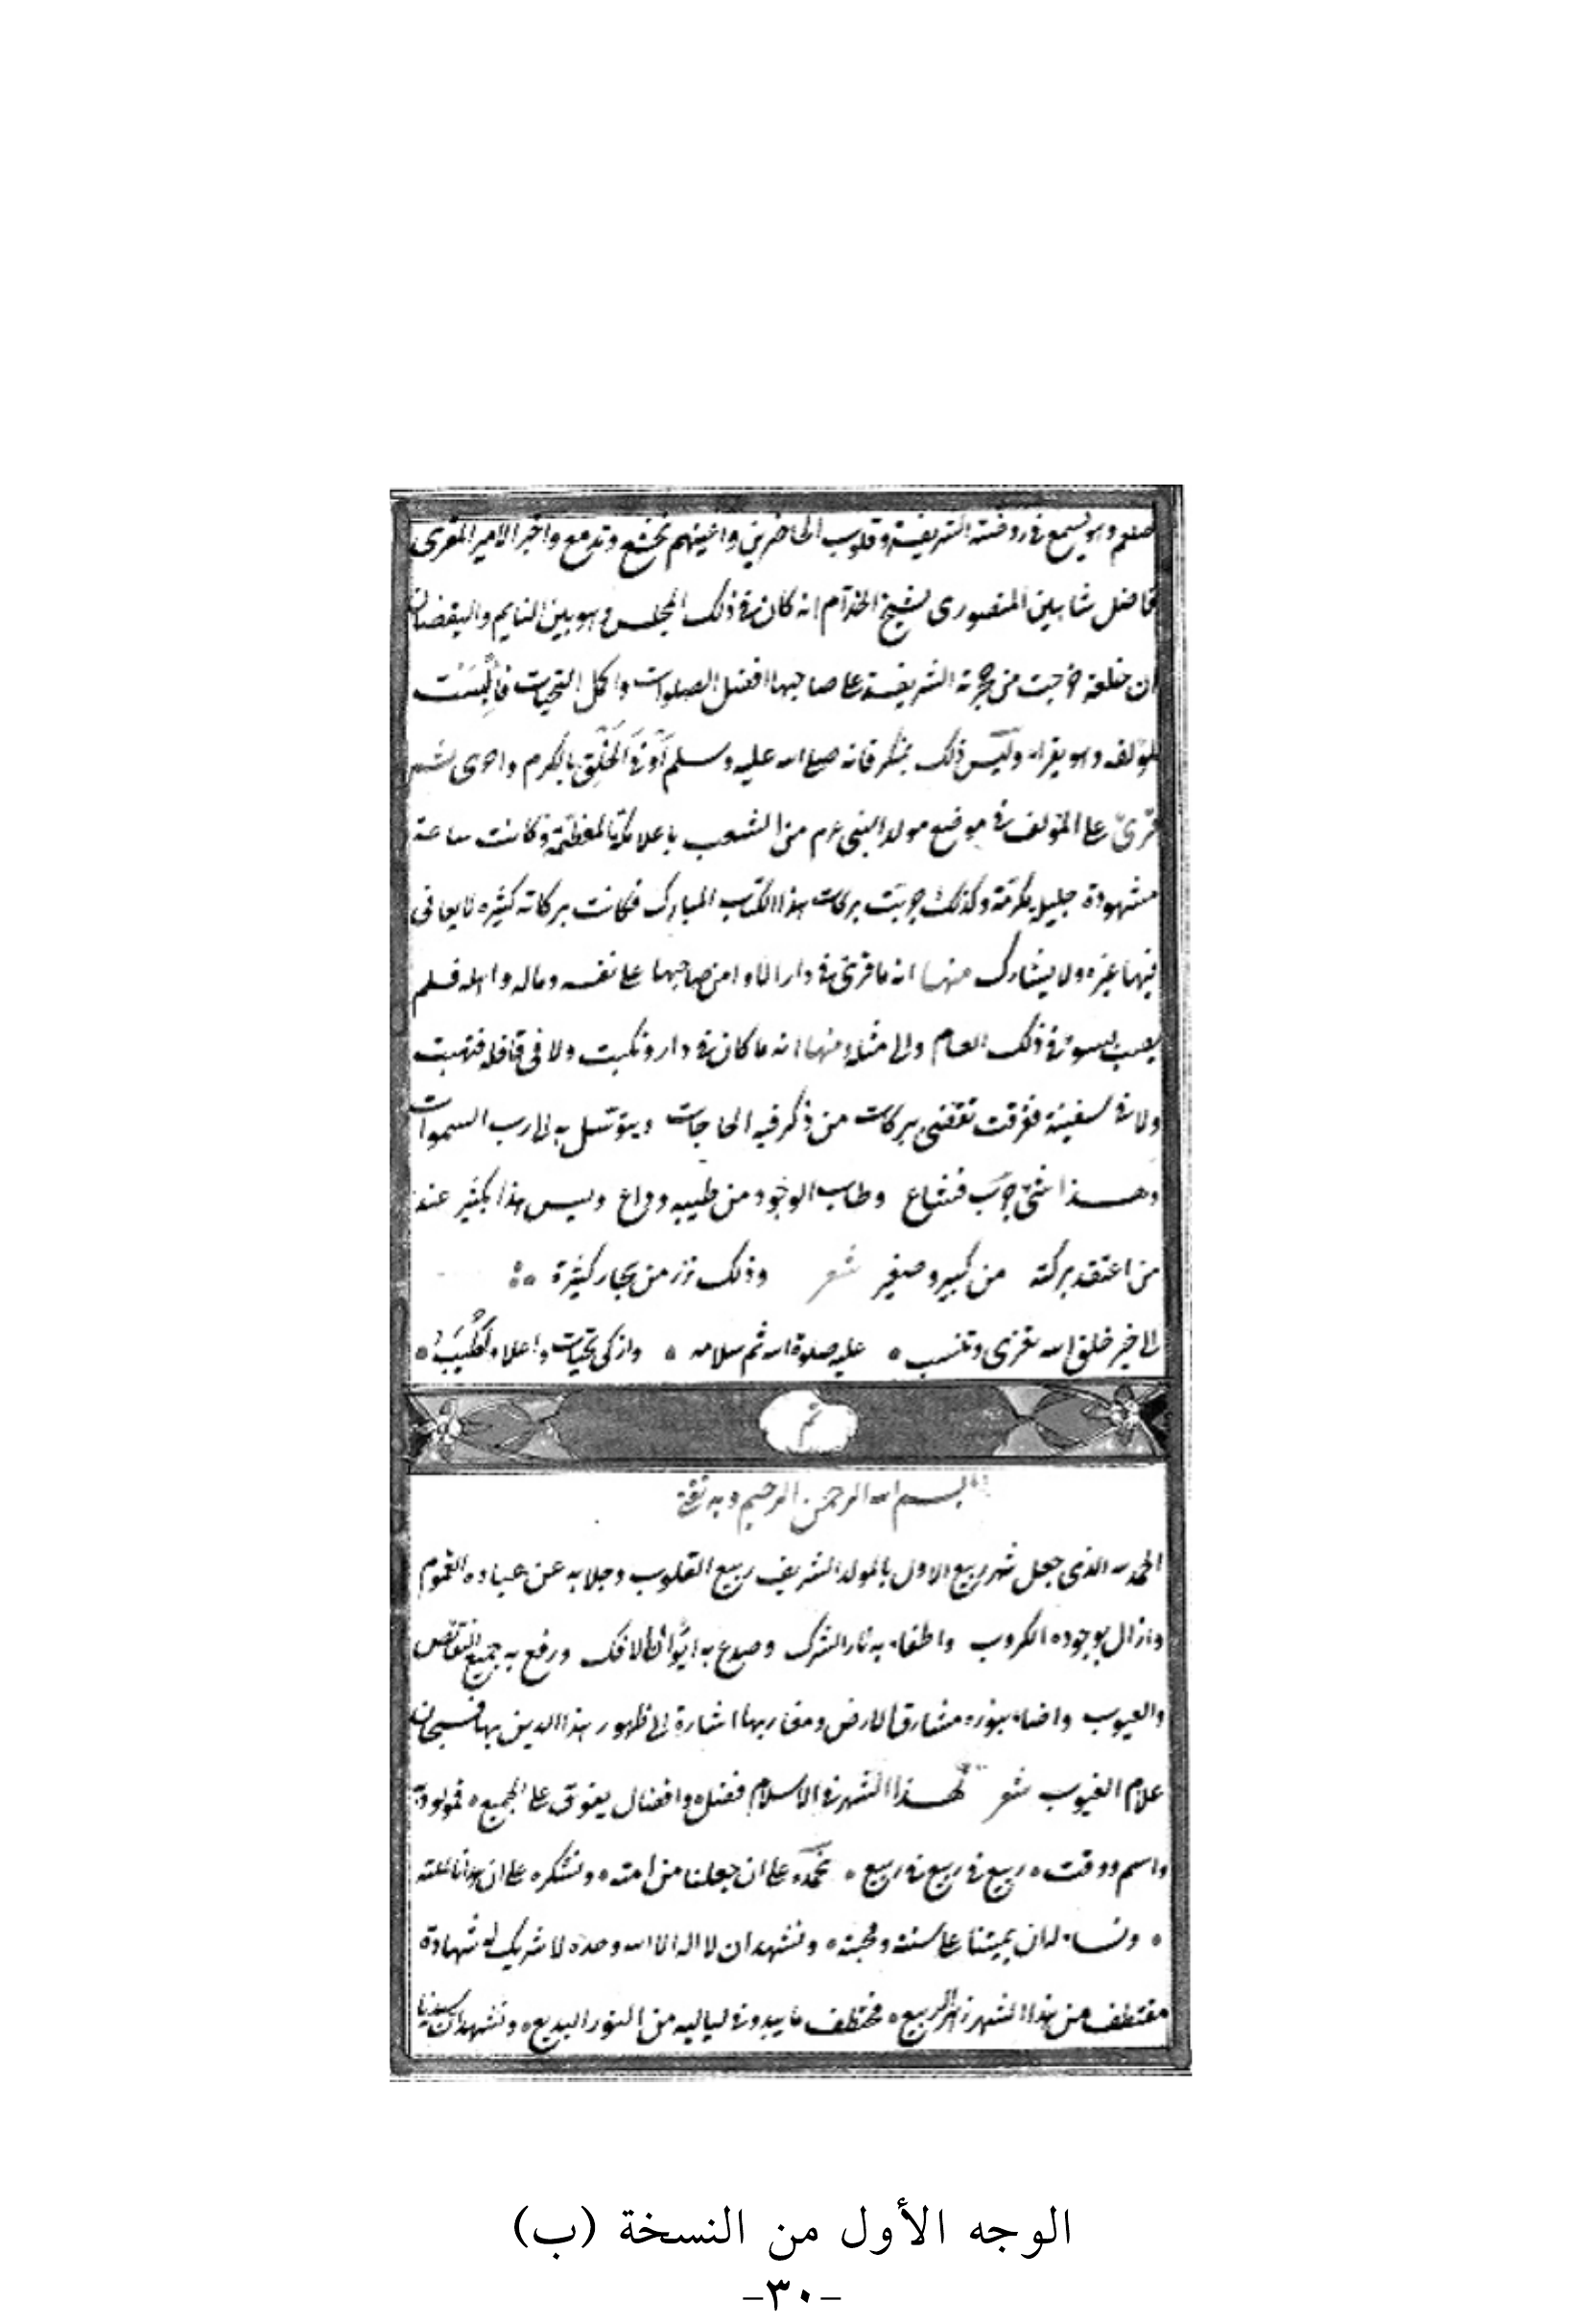 صلعم وهو يسمع في روضته الشريفة وقلوب الحاضرين واعينهم تخشع وتدمع واخبر الامير المقرى
فاضل شاهين المنصورى شيخ الخدّام انه كان في ذلك المجلس وهو بين النايم واليقضان
ان خلعة خرجت من حجرته الشريفة على صاحبها افضل الصلوات واكمل التحيات فاُلْبِسَتْ
لمؤلفه وهو يقراه وليس ذلك بمنكر فانه صلى الله عليه وسلم الخلق بالكرم واحرى
قرئ على المؤلف في موضع مولد النبى عم من الشعب باعلا مكة المعظمة وكانت ساعة
مشهودة جليلة مكرمة وكذلك جربت بركات هذا الكتاب المبارك فكانت بركاته كثيره لا
فيها غيره ولا يشارك منها انه ما قرئ في دار الا وامن صاحبها على نفسه وماله واهله فلم
يصب بسوء في ذلك العام والى مثله منها انه ما كان في دار ونكبت ولا في قافلة فنهبت
ولا في سفينة فغرقت ببركات من ذكر فيه الحاجات ويتوسل به الى رب السموات
وهذا شئ جرّب فشاع وطاب الوجود من طيبه وضاع وليس هذا بكثير عند
من اعتقد بركته من كبير وصغير شعر وذلك نزر من بحار كثيرة
الى خير خلق الله تعزى وتنسب ٥ عليه صلوة الله ثم سلامه ٥ وازكى تحيات واعلا واطيب ٥
تم
بسم الله الرحمن الرحيم وبه ثقتى
الحمد لله الذى جعل شهر ربيع الاول بالمولد الشريف ربيع القلوب وجلا به عن عباده الغموم
وازال بوجوده الكروب واطفاء به نار الشرك وصدع به ايوان الافك ورفع به جميع النقائص
والعيوب واضاء بنوره مشارق الارض ومغاربها اشارة الى ظهور هذا الدين بها فسبحان
علام الغيوب شعر لهذا الشهر في الاسلام فضل ٥ وافضال يفوق على الجميع ٥ فمولود به
واسم ووقت ٥ ربيع في ربيع في ربيع ٥ نحمده على ان جعلنا من امته ٥ ونشكره على ان هدانا لملته
٥ ونساله ان يميتنا على سنته ومحبته ٥ ونشهد ان لا اله الا الله وحده لا شريك له شهادة
مقتطف من هذا الشهر زهر الربيع ٥ مختطف ما يبدو في لياليه من النور البديع ٥ ونشهد ان سيدنا
الوجه الأول من النسخة (ب)
-٣٠-